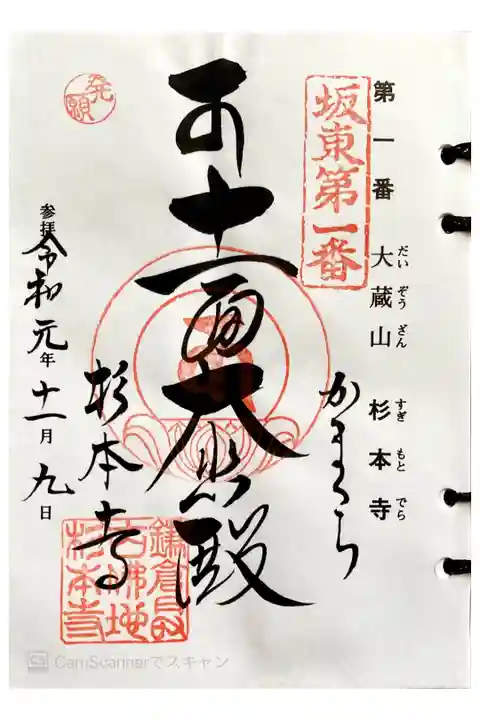 第一番 大蔵山 杉本寺
だいぞうざん すぎもとでら
坂東第一番
かまくら
十一面大悲殿
発願
杉本寺
参拝 令和元年十一月九日
鎌倉最
古佛地
杉本寺
CS CamScannerでスキャン